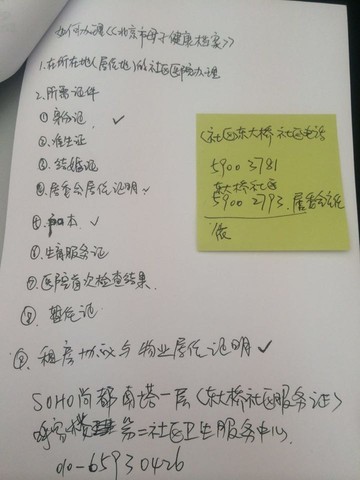 如何办理《《北京市母子健康档案》》
1.在所在地(居住地)的社区医院办理
2.所需证件
①身份证 ✓
②准生证
③结婚证
④居委会居住证明 ✓
⑤户口本 ✓
⑥生育服务证
⑦医院首次检查结果
⑧暂住证
⑨租房协议与物业居住证明 ✓
SOHO尚都南塔一层(东大桥社区服务证)
呼家楼第二社区卫生服务中心
010-65930426
(社区)东大桥社区电话
5900 3781
东大桥社区
5900 2793 居委会